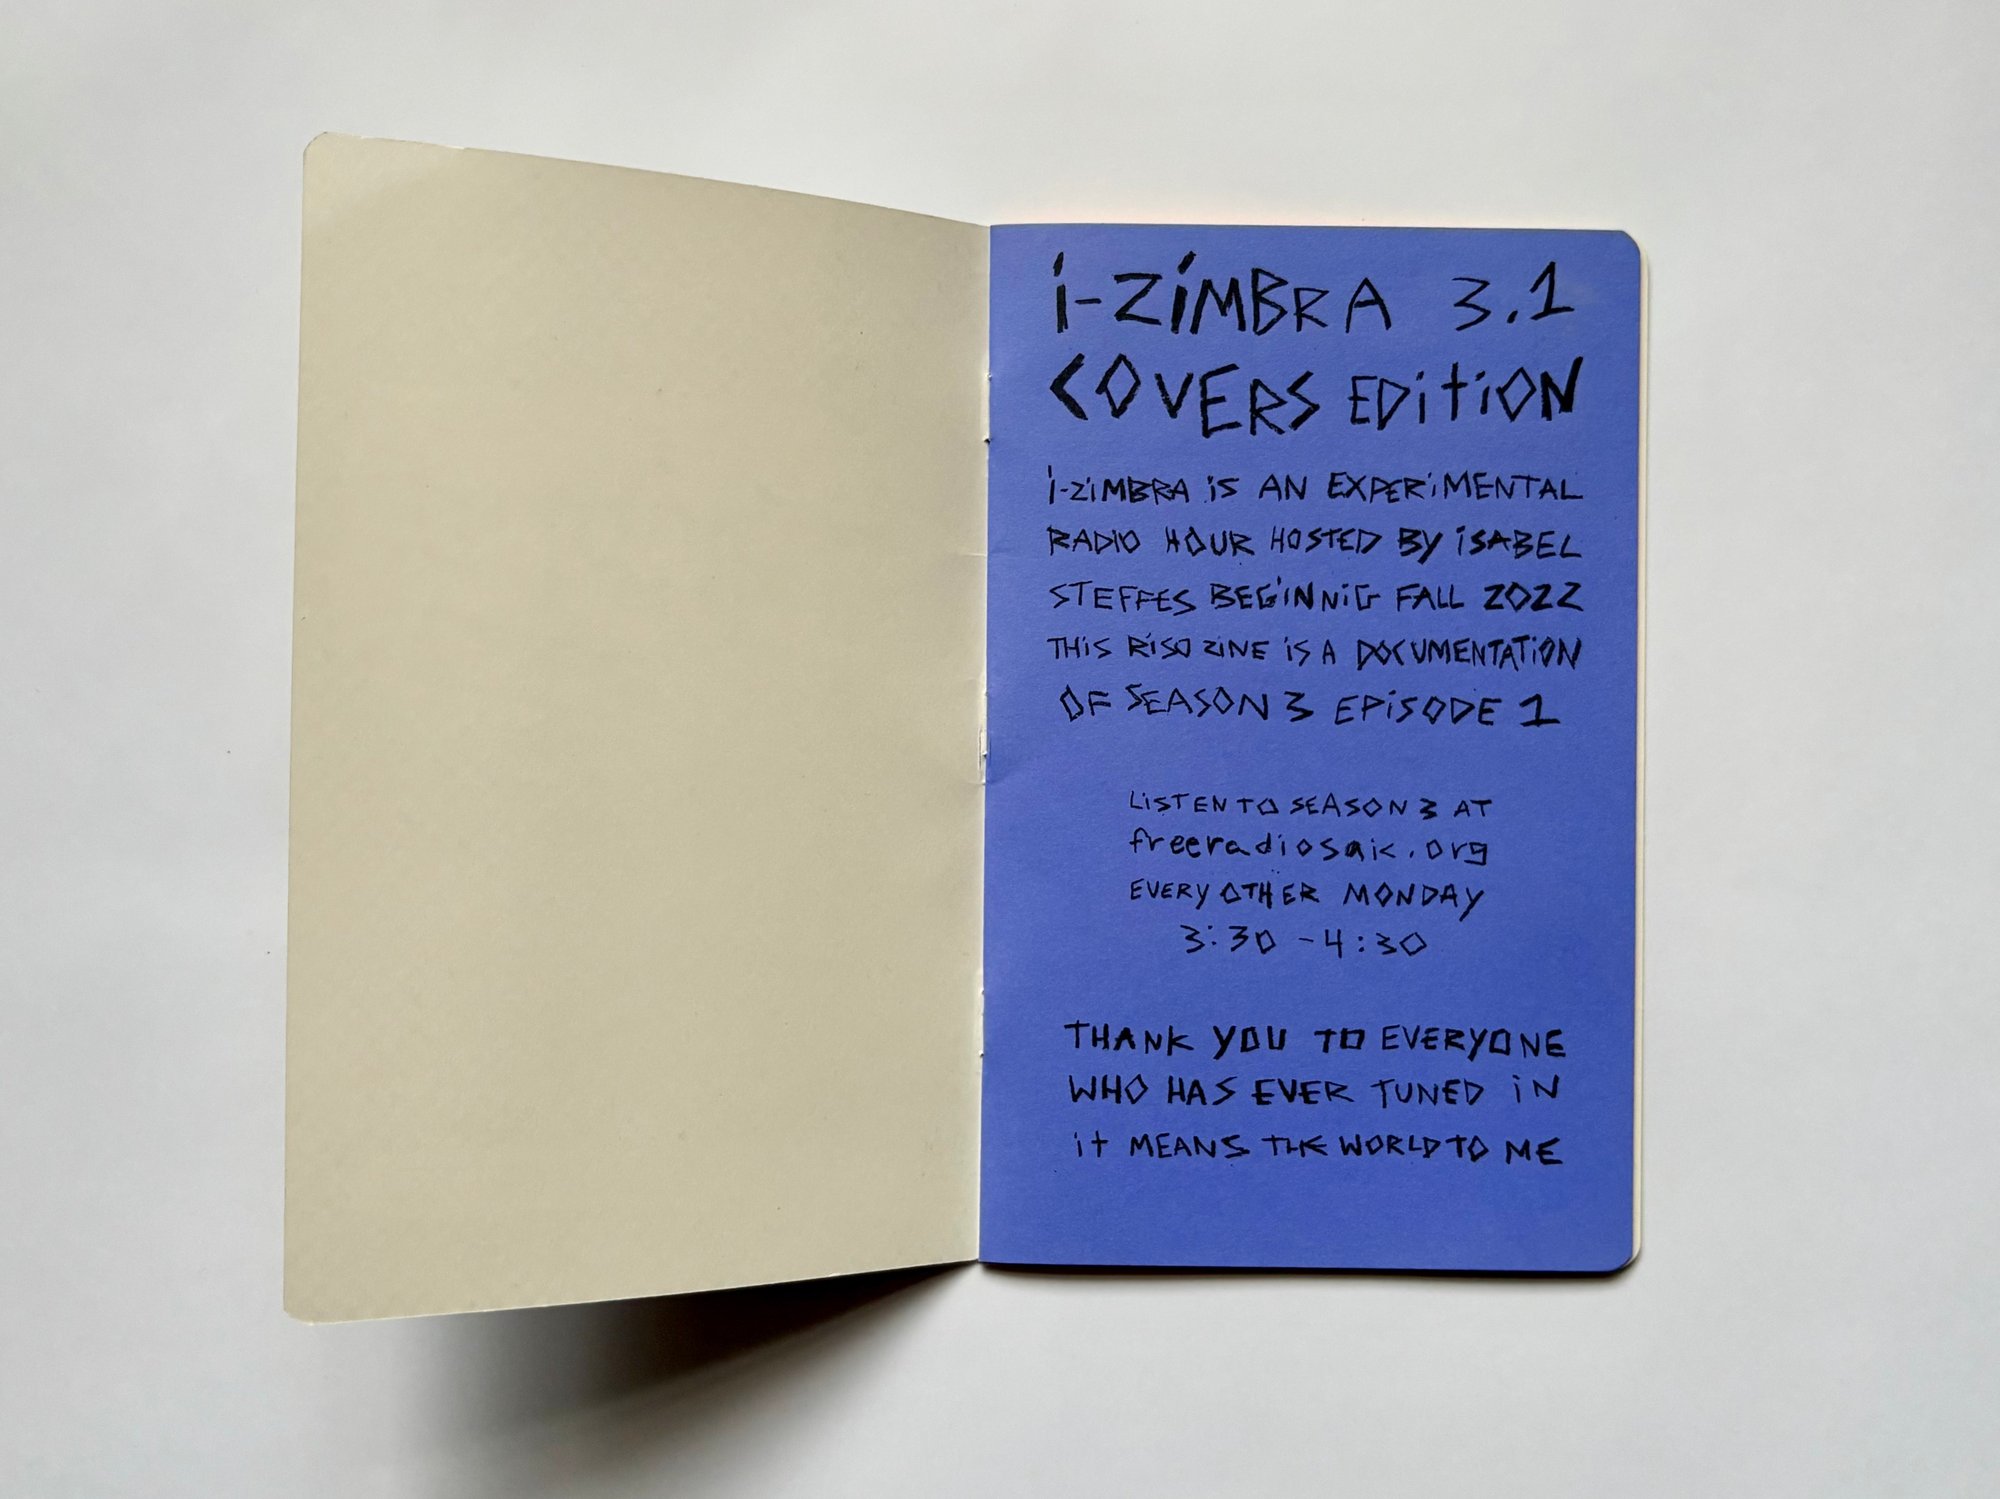 i-ZiMBRA 3.1
COVERS EDiTiON
i-ZiMBRA iS AN EXPERiMENTAL
RADIO HOUR HOSTED BY iSABEL
STEFFES BEGiNNiG FALL 2022
THiS RiSO ZiNE iS A DOCUMENTATiON
OF SEASON 3 EPiSODE 1
LiSTEN TO SEASON 3 AT
freeradiosaic.org
EVERY OTHER MONDAY
3:30 - 4:30
THANK YOU TO EVERYONE
WHO HAS EVER TUNED iN
iT MEANS THE WORLD TO ME